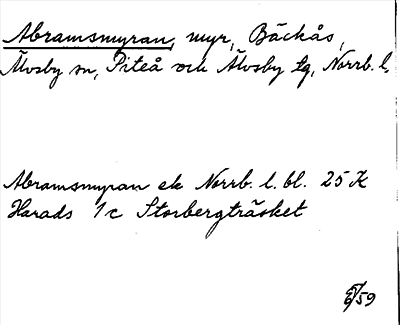 Abramsmyran, myr, Bäckås,
Älvsby sn, Piteå och Älvsby tg, Norrb. l.
Abramsmyran ek Norrb. l. bl. 25 K
Harads 1c Storbergträsket
59